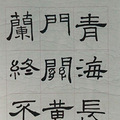 青海長
門關黃
蘭終不